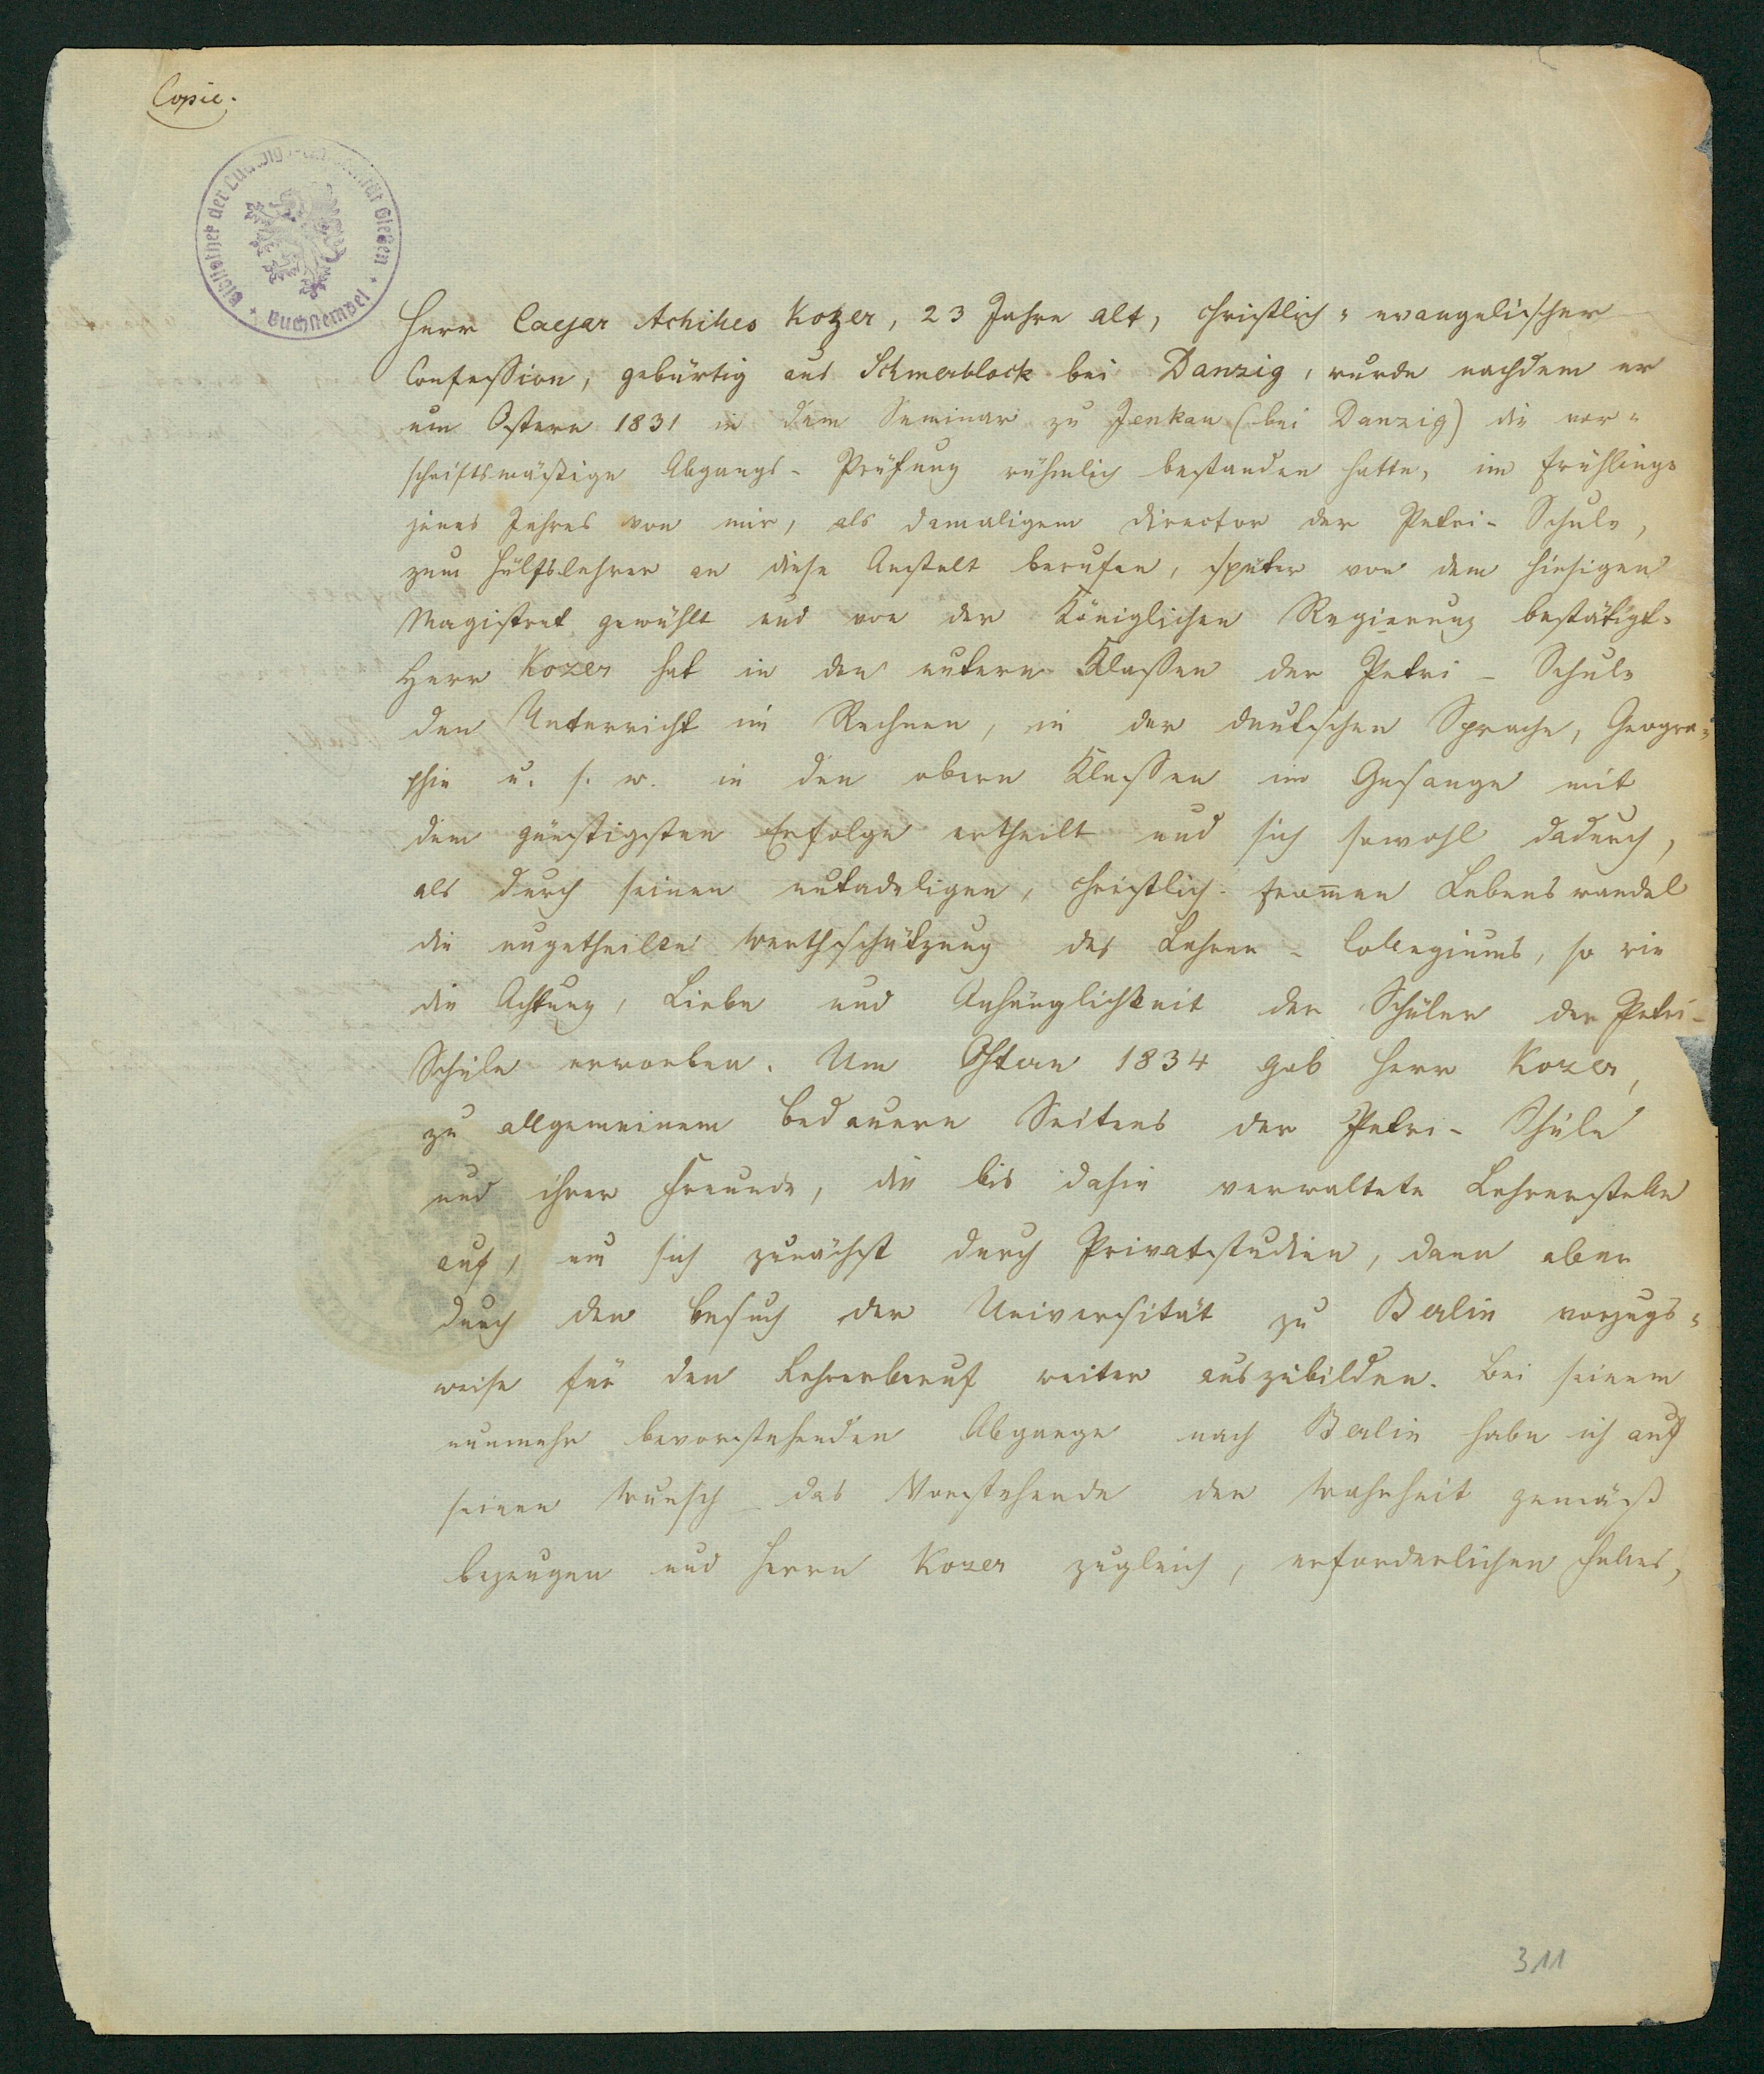 Copie.
Bibliothek der Ludwigs-Universität Gießen
Buchstempel
Herr Caesar Achilles Kozer, 23 Jahre alt, christlich=evangelischer
Confession, gebürtig aus Schmerblock bei Danzig, wurde nachdem er
um Ostern 1831 in dem Seminar zu Jenkau (bei Danzig) die vor=
schriftsmäßige Abgangs-Prüfung rühmlich bestanden hatte, im Frühlinge
jenes Jahres von mir, als damaligem Director der Petri-Schule,
zum Hülfslehrer an diese Anstalt berufen, später von dem hiesigen
Magistrat gewählt und von der Königlichen Regierung bestätigt.
Herr Kozer hat in den untern Klassen der Petri-Schule
den Unterricht im Rechnen, in der deutschen Sprache, Geogra=
phie u. s. w. in den obern Klassen im Gesange mit
dem günstigsten Erfolge ertheilt und sich sowohl dadurch,
als durch seinen untadeligen, christlich-from̄en Lebenswandel
die ungetheilte Werthschätzung des Lehrer-Collegiums, so wie
die Achtung, Liebe und Anhänglichkeit der Schüler der Petri-
Schule erworben. Um Ostern 1834 gab Herr Kozer,
zu allgemeinem Bedauern Seitens der Petri-Schule
und ihrer Freunde, die bis dahin verwaltete Lehrerstelle
auf, um sich zunächst durch Privatstudien, dann aber
durch den Besuch der Universität zu Berlin vorzugs=
weise für den Lehrerberuf weiter auszubilden. Bei seinem
nunmehr bevorstehenden Abgange nach Berlin habe ich auf
seinen Wunsch das Vorstehende der Wahrheit gemäß
bezeugen und Herrn Kozer zugleich, erforderlichen Falles,
311